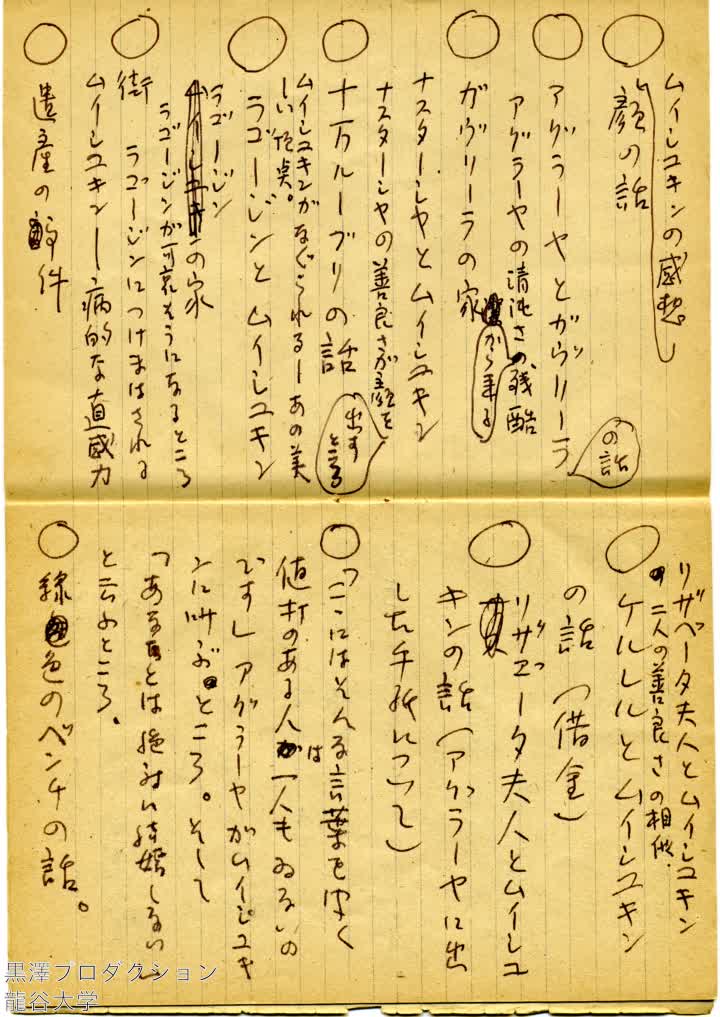 ムイシユキンの感想
顔の話
アグラーヤとガヴリーラ
の話
アグラーヤの清純さの残酷
ガヴリーラの家
から来る
ナスターシヤとムイシユキン
ナスターシヤの善良さが顔を
出す
ところ
十万ルーブリの話
ムイシユキンがなぐられる―あの美
しい頂点。
ラゴージンとムイシユキン
ラゴージン
の家
ラゴージンが可哀そうになるところ
街 ラゴージンにつけまはされる
ムイシユキン―病的な直感力
遺産の件
リザベータ夫人とムイシユキン
二人の善良さの相似.
ケルレルとムイシユキン
の話(借金)
リザヹータ夫人とムイシユ
キンの話(アグラーヤに出
した手紙について)
「ここにはそんな言葉をきく
値打のある人は一人もゐないの
です」アグラーヤがムイシユキ
ンに叫ぶところ。そして
「あなたとは絶対に結婚しない」
と云ふところ.
緑色のベンチの話。
黒澤プロダクション
龍谷大学